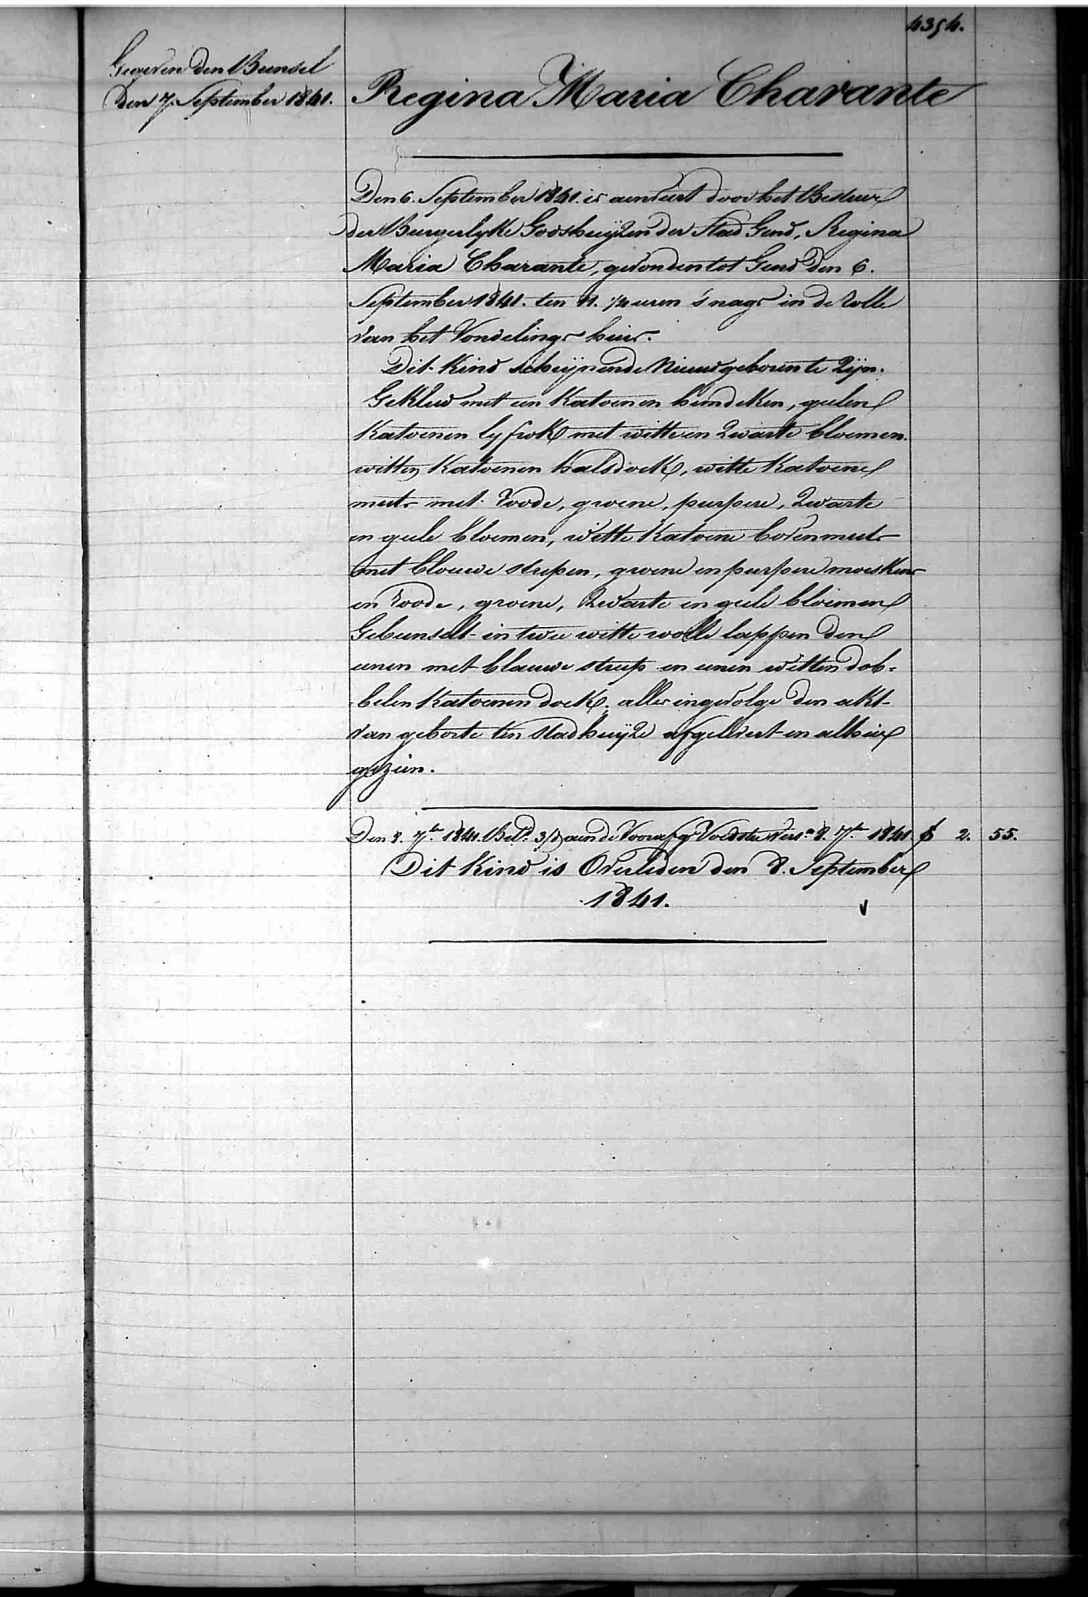 4354.
Gegeven den Bunsel
den 7. September 1841.
Regina Maria Charante
Den 6. September 1841. is aenveert door het Bestuer
der Burgerlyke Godshuijzen der Stad Gend, Regina
Maria Charante, gevonden tot Gend den 6.
September 1841. ten 11. 1/2 uren 's nags in de Rolle
van het Vondelings huis.
Dit Kind scheijnende Nieuwgeboren te Zijn.
Gekleed met een Katoenen hemdeken, geelen
Katoenen lyfrok met witte en Zwarte bloemen.
witten Katoenen halsdoek, witte Katoene
muts met Roode, groene, purpere, Zwarte
en geele bloemen, witte Katoene bovenmuts
met blouwe strepen, groene en purpere moeskens
en Roode, groene, Zwarte en geele bloemen
Gebunselt in twee witte wolle lappen den
eenen met blauwe streep en eenen witten dob-
belen Katoenen doek, alles ingevolge den akt
van geborte ten Stadhuijze afgeleverd en alhier
gezien.
Den 8. 7.br 1841. Bet.d 3/d aen de Voorafg. Voedster Vers. 8. 7.br 1841 f 2. 55.
Dit Kind is Overleden den 8. September
1841.